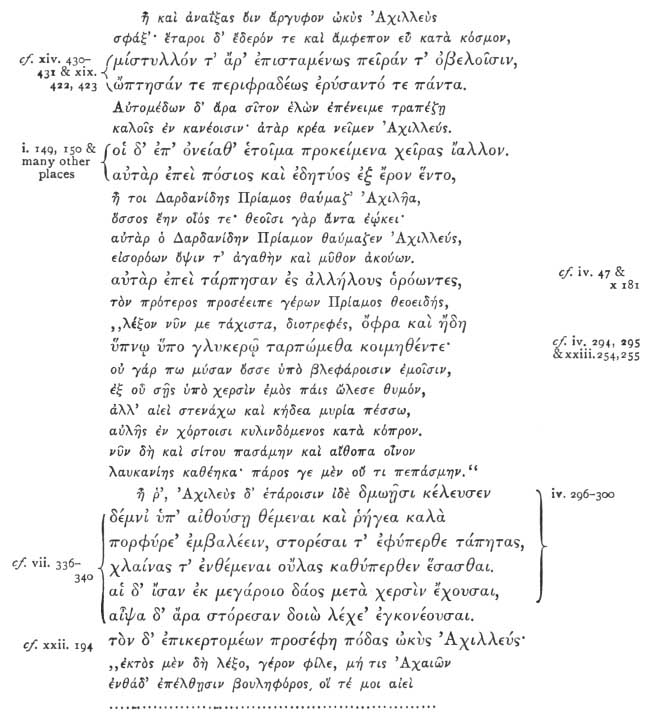 ἦ καὶ ἀναΐξας ὄιν ἄργυφον ὠκὺς Ἀχιλλεὺς
σφάξ’· ἕταροι δ’ ἔδερόν τε καὶ ἄμφεπον εὖ κατὰ κόσμον,
cf. xiv. 430–
431 & xix.
422, 423
μίστυλλόν τ’ ἄρ’ ἐπισταμένως πεῖράν τ’ ὀβελοῖσιν,
ὤπτησάν τε περιφραδέως ἐρύσαντό τε πάντα.
Αὐτομέδων δ’ ἄρα σῖτον ἑλὼν ἐπένειμε τραπέζῃ
καλοῖς ἐν κανέοισιν· ἀτὰρ κρέα νεῖμεν Ἀχιλλεύς.
i. 149, 150 &
many other
places
οἱ δ’ ἐπ’ ὀνείαθ’ ἑτοῖμα προκείμενα χεῖρας ἴαλλον.
αὐτὰρ ἐπεὶ πόσιος καὶ ἐδητύος ἐξ ἔρον ἕντο,
ἦ τοι Δαρδανίδης Πρίαμος θαύμαζ’ Ἀχιλῆα,
ὅσσος ἔην οἷός τε· θεοῖσι γὰρ ἄντα ἐῴκει·
αὐτὰρ ὁ Δαρδανίδην Πρίαμον θαύμαζεν Ἀχιλλεύς,
εἰσορόων ὄψιν τ’ ἀγαθὴν καὶ μῦθον ἀκούων.
αὐτὰρ ἐπεὶ τάρπησαν ἐς ἀλλήλους ὁρόωντες,
cf. iv. 47 &
x 181
τὸν πρότερος προσέειπε γέρων Πρίαμος θεοειδής,
„λέξον νῦν με τάχιστα, διοτρεφές, ὄφρα καὶ ἤδη
ὕπνῳ ὕπο γλυκερῷ ταρπώμεθα κοιμηθέντε·
cf. iv. 294, 295
& xxiii. 254, 255
οὐ γάρ πω μύσαν ὄσσε ὑπὸ βλεφάροισιν ἐμοῖσιν,
ἐξ οὗ σῇς ὑπὸ χερσὶν ἐμὸς πάις ὤλεσε θυμόν,
ἀλλ’ αἰεὶ στενάχω καὶ κήδεα μυρία πέσσω,
αὐλῆς ἐν χόρτοισι κυλινδόμενος κατὰ κόπρον.
νῦν δὴ καὶ σίτου πασάμην καὶ αἴθοπα οἶνον
λαυκανίης καθέηκα· πάρος γε μὲν οὔ τι πεπάσμην.“
ἦ ῥ’, Ἀχιλεὺς δ’ ἑτάροισιν ἰδὲ δμωῇσι κέλευσεν
iv. 296–300
cf. vii. 336–
340
δέμνι’ ὑπ’ αἰθούσῃ θέμεναι καὶ ῥήγεα καλὰ
πορφύρε’ ἐμβαλέειν, στορέσαι τ’ ἐφύπερθε τάπητας,
χλαίνας τ’ ἐνθέμεναι οὔλας καθύπερθεν ἕσασθαι.
αἱ δ’ ἴσαν ἐκ μεγάροιο δάος μετὰ χερσὶν ἔχουσαι,
αἶψα δ’ ἄρα στόρεσαν δοιὼ λέχε’ ἐγκονέουσαι.
cf. xxii. 194
τὸν δ’ ἐπικερτομέων προσέφη πόδας ὠκὺς Ἀχιλλεύς·
„ἐκτὸς μὲν δὴ λέξο, γέρον φίλε, μή τις Ἀχαιῶν
ἐνθάδ’ ἐπέλθῃσιν βουληφόρος, οἵ τέ μοι αἰεὶ